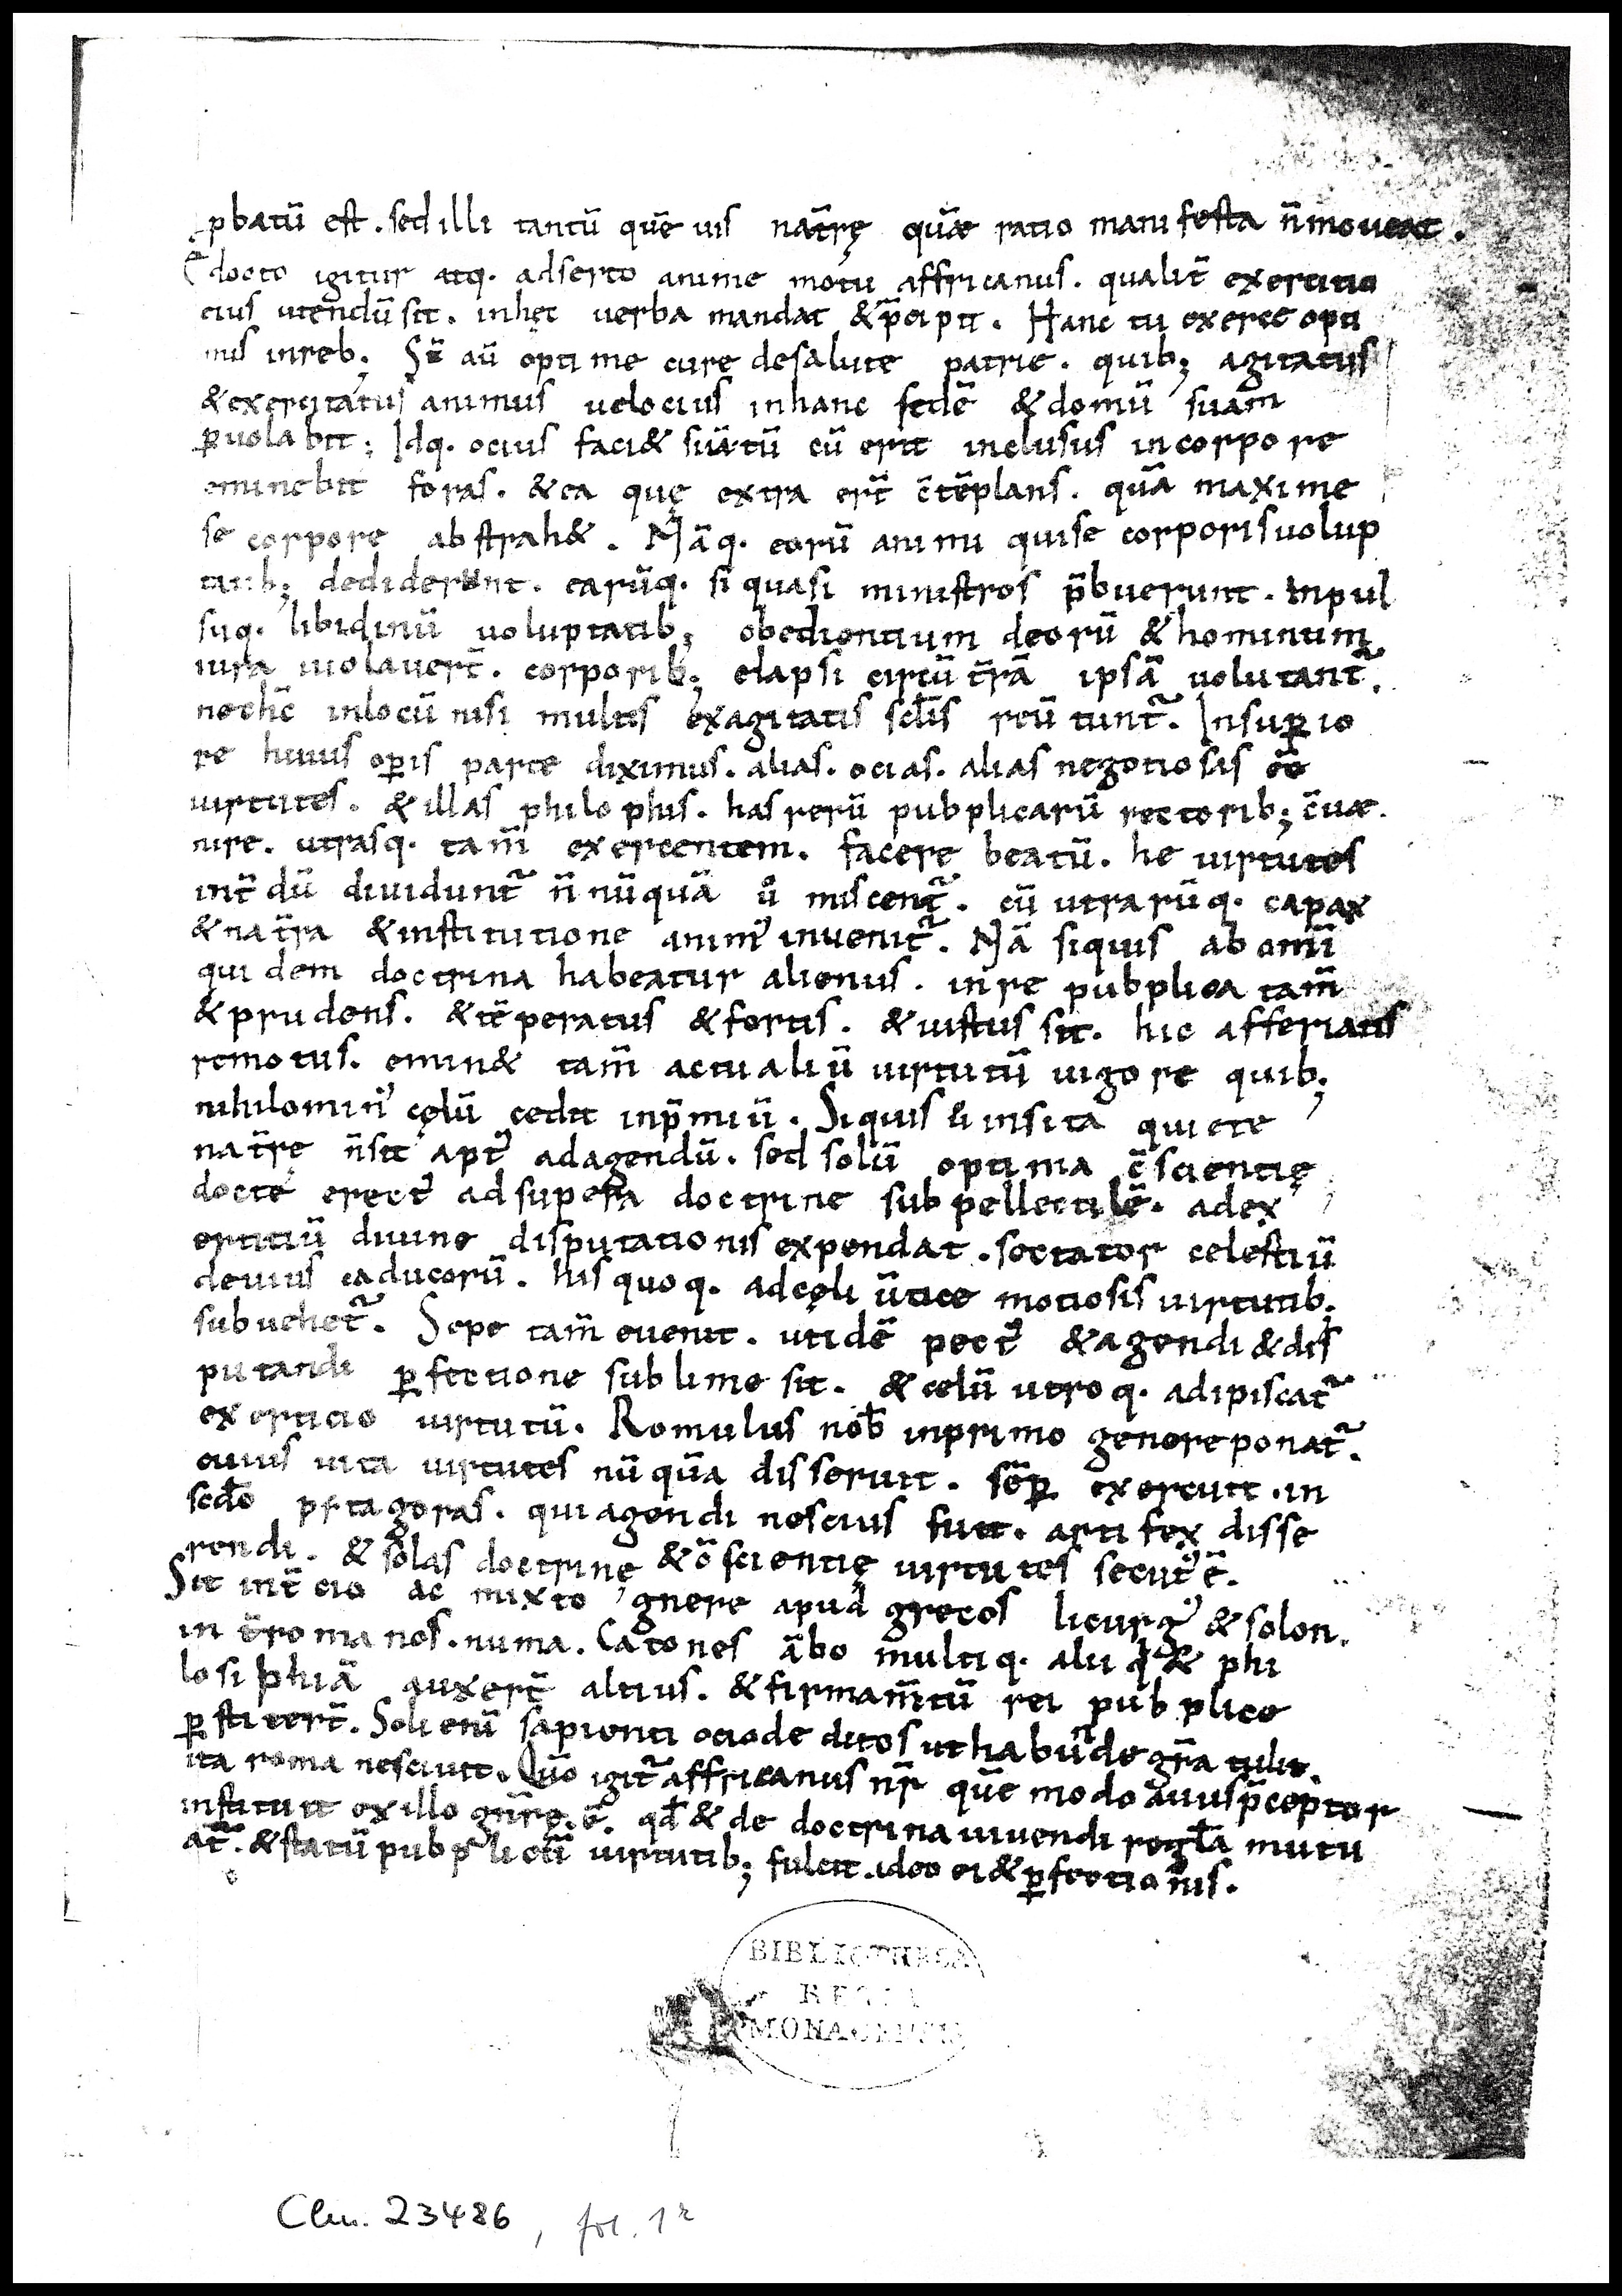 pbatū est. sed illi tantū quē uis nat̄rę quā ratio manifesta n̄ moueat.
Edocto igitur atq. adserto anime motu affricanus. qualit̄ exercitio
eius utendū sit. in hęc uerba mandat & p̄cipit. Hanc tu exerce opti
mis in reb; St̄ aū optime cure de salute patrie. quib; agitatus
& exercitatus animus uelocius in hanc sedē & domū suam
puolabit; Idq. ocius faci& si iā tū cū erit inclusus in corpore
eminebit foras. & ea quę extra er̄t c̄tēplans. quā maxime
se corpore abstrah&. Nāq. eorū animi qui se corporis uolup
tatib; dediderunt. earūq. si quasi ministros p̄buerunt. inpul
suq. libidinū uoluptatib; obedientium deorū & hominum
iura uiolauer̄t. corporib; elapsi circū t̄rā ipsā uolutant̄.
nec hc̄ in locū nisi multis exagitatis sclīs reūtunt̄. In supio
re huius opis parte diximus. alias. ocias. alias negotiosas ēē
uirtutes. & illas philophis. has rerū pubplicarū rectorib; c̄ue
nire. utrasq. tam̄ exercentem. facere beatū. he uirtutes
int̄dū diuidunt̄ n̄nūquā ů miscent̄. cū utrarūq. capax
& nat̄ra & institutione anim' inuenit̄. Nā siquis ab omī
quidem doctrina habeatur alienus. in re pubplica tam̄
& prudens. & tēperatus & fortis. & iustus sit. hic afferiatis
remotus. emin& tam̄ actualiū uirtutū uigore quib;
nihilomin' cęlū cedit in p̄miū. Siquis ů insita quiete
nat̄rę n̄ sit apt' ad agendū. sed solū optima c̄scientię
docte erect' ad supera doctrine subpellectilē. ad ex
ercitiū diuine disputationis expendat. sectator celestiū
deuius caducorū. his quoq. ad cęli ūtice motiosis uirtutib;
subuehet̄. Sepe tam̄ euenit. ut idē pect' & agendi & dis
putandi pfectione sublime sit. & celū utroq. adipiscat̄
exercicio uirtutū. Romulus nob̄ in primo genere ponat̄.
cuius uita uirtutes nūquā disseruit. sēp exercuit. in
scdō pitagoras. qui agendi nescius fuit. artifex disse
rendi. & solas doctrinę & c̄scientię uirtutes secut' ē.
Sit in t̄cio ac mixto gnere apud grecos licurg' & solon.
int̄ romanos. numa. Catones ābo multiq. alii q̄ & phi
losiphiā auxer̄t altius. & firmam̄tū rei pubplice
pstiter̄t. Soli enī sapienti ocio deditos ut habūde gr̄a tulit.
ita roma nesciuit. Quō igit̄ affricanus nr̄ quē modo auus p̄ceptor
instituit ex illo gn̄re. ē. qd̄ & de doctrina uiuendi regl̄a mutu
at̄. & statū pubplicū uirtutib; fulcit. ideo ei & pfectionis.
BIBLIOTHECA
REGIA
MONACENSIS
Clm. 23486, fol. 1r